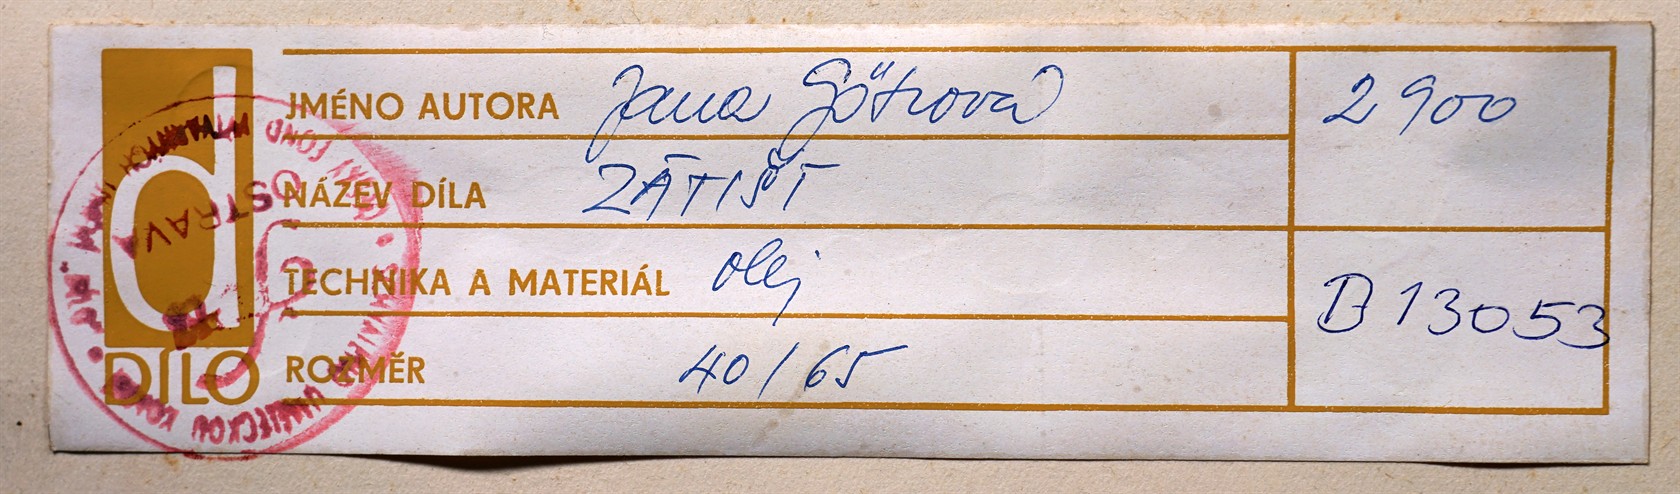 JMÉNO AUTORA Jana Götzová 2900
NÁZEV DÍLA ZÁTIŠÍ
TECHNIKA A MATERIÁL olej
D 13053
ROZMĚR 40/65
d
DÍLO
OSTRAVA
FOND VÝTVARNÝCH